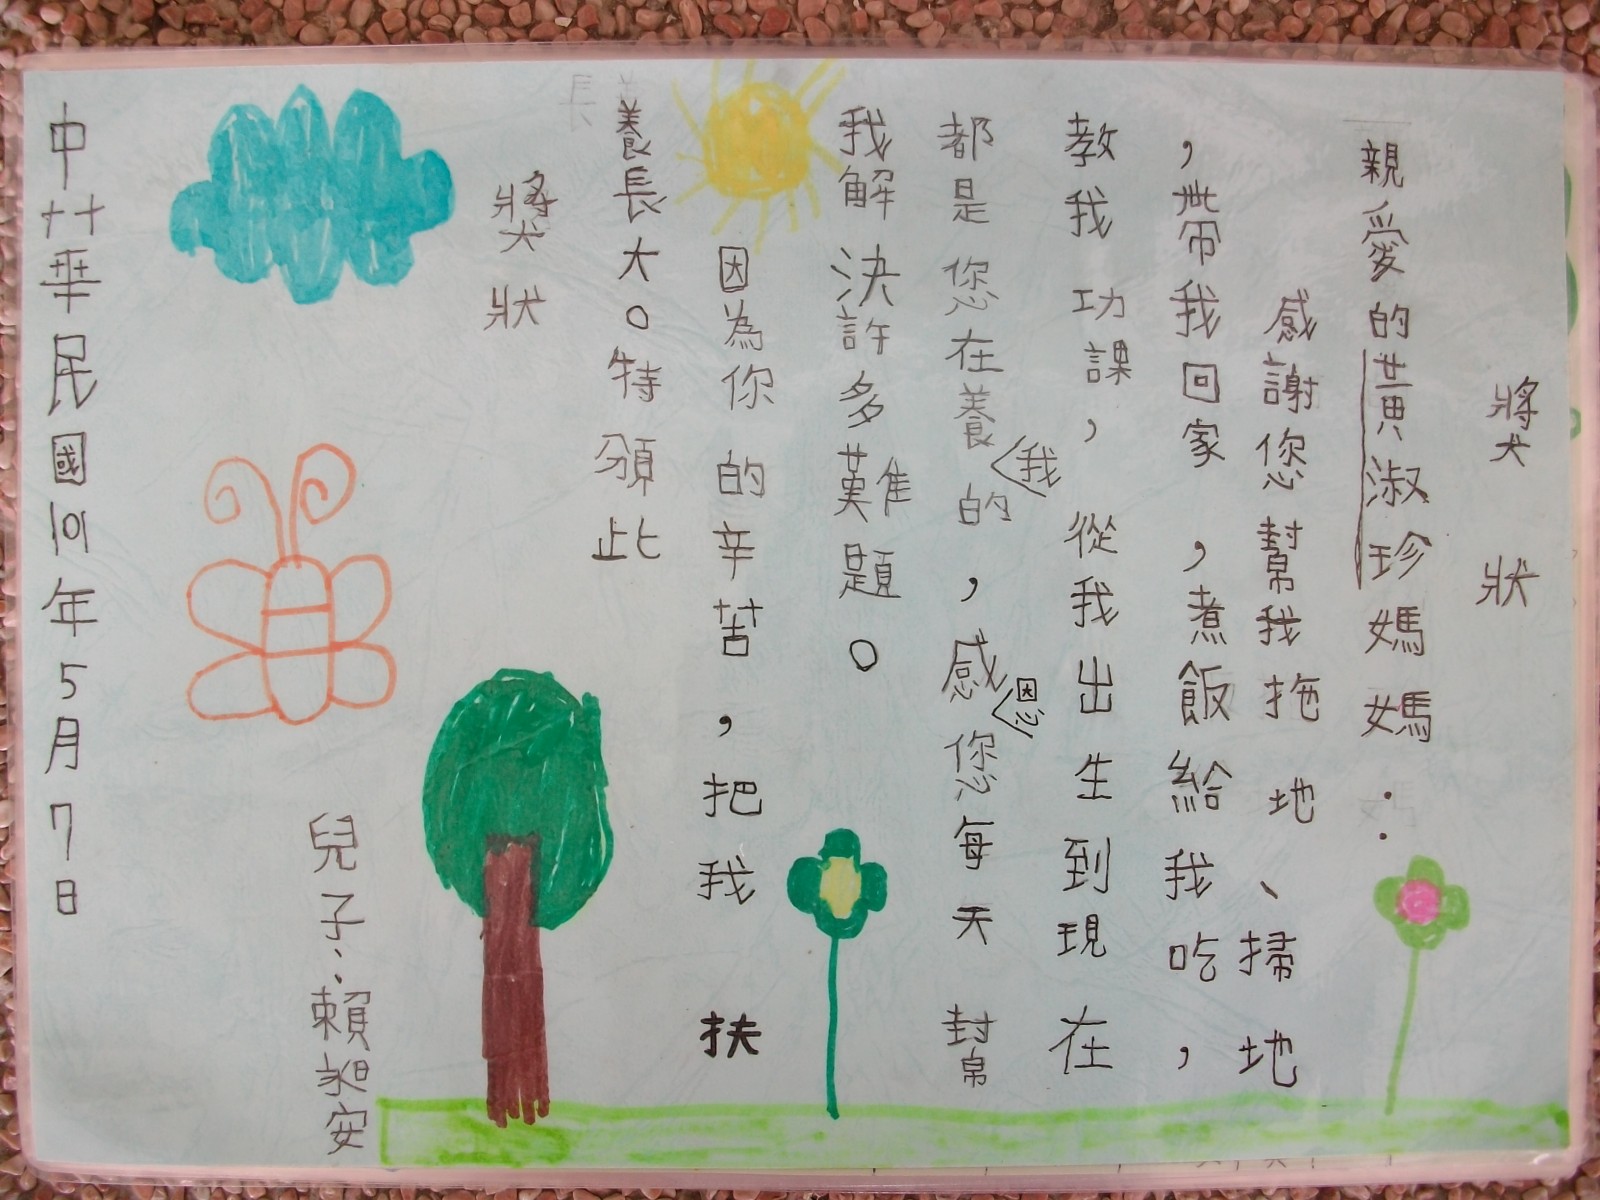 獎狀
親愛的黃淑珍媽媽：
感謝您幫我拖地、掃地
，帶我回家，煮飯給我吃，
教我功課，從我出生到現在
都是您在養我的，感恩您每天幫
我解決許多難題。
因為你的辛苦，把我扶
養長大。特頒此
獎狀
兒子：賴昶安
中華民國101年5月7日